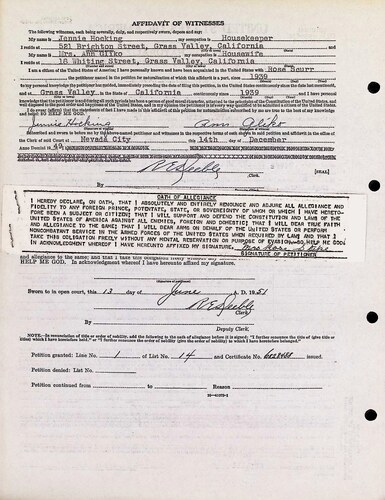 AFFIDAVIT OF WITNESSES
The following witnesses, each being severally, duly, and respectively sworn, depose and say:
My name is Jennie Hocking my occupation is Housekeeper
I reside at 521 Brighton Street, Grass Valley, California and
My name is Mrs. Ann Glko my occupation is Housewife
I reside at 16 Whiting Street, Grass Valley, California
I am a citizen of the United States of America; I have personally known and have been acquainted in the United States with Rose Scurr
the petitioner named in the petition for naturalization of which this affidavit is a part, since 1939
to my personal knowledge the petitioner has resided, immediately preceding the date of filing this petition, in the United States continuously since the date last mentioned, and
at Grass Valley in the State of California continuously since 1939 and I have personal
knowledge that the petitioner is and during all such periods has been a person of good moral character, attached to the principles of the Constitution of the United States, and
well disposed to the good order and happiness of the United States, and in my opinion the petitioner is in every way qualified to be admitted a citizen of the United States.
I do swear (affirm) that the statements of fact I have made of this affidavit of this petition for naturalization subscribed by me are true to the best of my knowledge and
belief: SO HELP ME GOD.
Jennie Hocking Ann Glko
Subscribed and sworn to before me by the above-named petitioner and witnesses in the respective forms of oath shown in said petition and affidavit in the office of
the Clerk of said Court at Nevada City this 14th day of December
Anno Domini 19
Clerk. [SEAL]
By
OATH OF ALLEGIANCE
I HEREBY DECLARE, ON OATH, THAT I ABSOLUTELY AND ENTIRELY RENOUNCE AND ABJURE ALL ALLEGIANCE AND
FIDELITY TO ANY FOREIGN PRINCE, POTENTATE, STATE, OR SOVEREIGNTY OF WHOM OR WHICH I HAVE HERETO-
FORE BEEN A SUBJECT OR CITIZEN; THAT I WILL SUPPORT AND DEFEND THE CONSTITUTION AND LAWS OF THE
UNITED STATES OF AMERICA AGAINST ALL ENEMIES, FOREIGN AND DOMESTIC; THAT I WILL BEAR TRUE FAITH
AND ALLEGIANCE TO THE SAME; THAT I WILL BEAR ARMS ON BEHALF OF THE UNITED STATES OR PERFORM
NONCOMBATANT SERVICE IN THE ARMED FORCES OF THE UNITED STATES WHEN REQUIRED BY LAW; AND THAT I
TAKE THIS OBLIGATION FREELY WITHOUT ANY MENTAL RESERVATION OR PURPOSE OF EVASION; SO HELP ME GOD.
IN ACKNOWLEDGMENT WHEREOF I HAVE HEREUNTO AFFIXED MY SIGNATURE. Mrs. Rose
SIGNATURE OF PETITIONER
and allegiance to the same; and that I take this obligation freely without any mental reservation
HELP ME GOD. In acknowledgment whereof I have hereunto affixed my signature
Sworn to in open court, this 13 day of June A. D. 1951
Clerk.
By
Deputy Clerk.
Petition granted: Line No. 1 of List No. 14 and Certificate No. issued.
Petition denied: List No.
Petition continued from to Reason